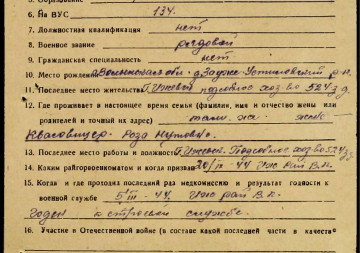 6. На ВУС 134.
7. Должностная квалификация нет
8. Военное звание рядовой
9. Гражданская специальность нет.
10. Место рождения Волынская обл. д. Устиловский р-н.
11. Последнее место жительства г. Ужгей подсобное хоз-во 524 з.д.
12. Где проживает в настоящее время семья (фамилия, имя и отчество жены или
родителей и точный их адрес) там же
Роза
13. Последнее место работы и должность г. Ужгей. Подсобное хоз-во 524 з.д.
14. Каким райгорвоенкоматом и когда призван 20/ - 44 Уж рай В.К.
15. Когда и где проходил последний раз медкомиссию и результат годности к
военной службе 5/III - 44. Уж рай В.К.
Годен к строевой службе.
16. Участие в Отечественной войне (в составе какой последней части в качестве